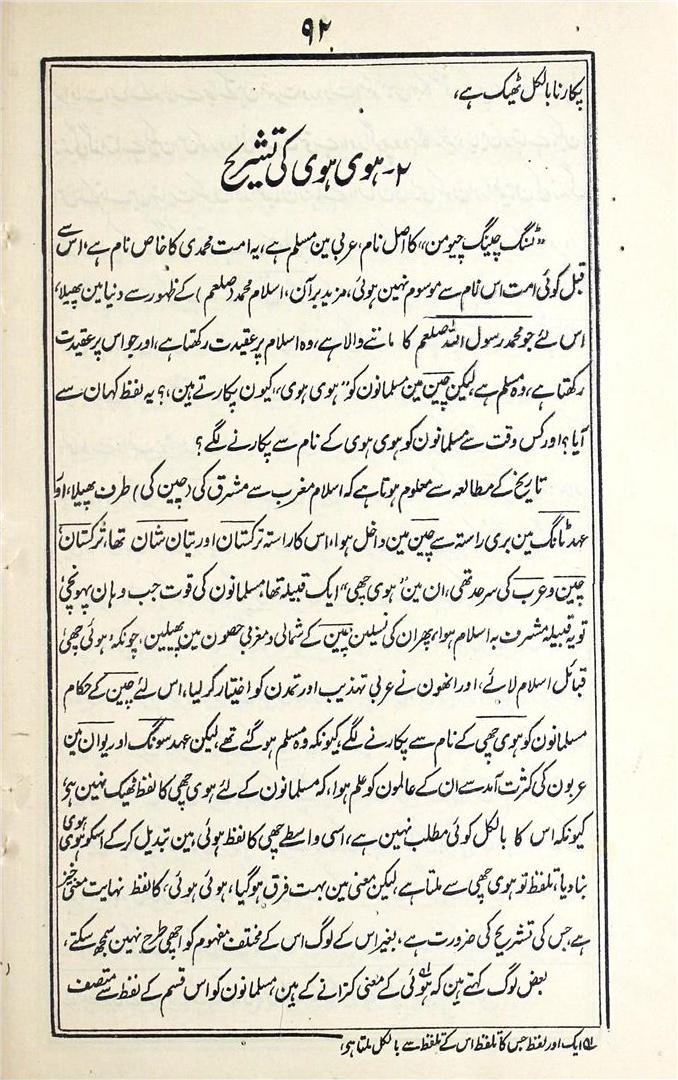 ۹۲
پکارنا بالکل ٹھیک ہے،
۲- ہوی ہوی کی تشریح
"ٹنگ چینگ چیومن" کا اصل نام، عربی مین مسلم ہے، یہ امت محمدی کا خاص نام ہے، اس سے
قبل کوئی امت اس نام سے موسوم نہین ہوئی، مزید برآن، اسلام محمد (صلعم) کے ظہور سے دنیا مین پھیلا،
اس لئے جو محمد رسول اللہ صلعم کا ماننے والا ہے، وہ اسلام پر عقیدت رکھتا ہے، اور جو اس پر عقیدت
رکھتا ہے، وہ مسلم ہے، لیکن چین مین مسلمانون کو "ہوی ہوی" کیون پکارتے ہین،؟ یہ لفظ کہان سے
آیا؟ اور کس وقت سے مسلمانون کو ہوی ہوی کے نام سے پکارنے لگے؟
تاریخ کے مطالعہ سے معلوم ہوتا ہے کہ اسلام مغرب سے مشرق کی (چین کی) طرف پھیلا، اور
عہد ٹانگ مین بری راستہ سے چین مین داخل ہوا، اس کا راستہ ترکستان اور تیان شان تھا، ترکستان
چین و عرب کی سرحد تھی، ان مین "ہوی چھی" ایک قبیلہ تھا، مسلمانون کی قوت جب وہان پہونچی
تو یہ قبیلہ مشرف بہ اسلام ہوا، پھر ان کی نسلین چین کے شمالی و مغربی حصون مین پھیلین، چونکہ ہوئی چھی
قبائل اسلام لائے، اور انھون نے عربی تہذیب اور تمدن کو اختیار کر لیا، اس لئے چین کے حکام
مسلمانون کو ہوی چھی کے نام سے پکارنے لگے، کیونکہ وہ مسلم ہو گئے تھے، لیکن عہد سونگ اور یوان مین
عربون کی کثرت آمد سے ان کے عالمون کو علم ہوا، کہ مسلمانون کے لئے ہوی چھی کا لفظ ٹھیک نہین ہے،
کیونکہ اس کا بالکل کوئی مطلب نہین ہے، اسی واسطے چھی کا لفظ ہوئی، مین تبدیل کر کے اسکو ہوی ہوی
بنا دیا، تلفظ تو ہوی چھی سے ملتا ہے، لیکن معنی مین بہت فرق ہو گیا، ہوئی ہوئی، کا لفظ نہایت معنی خیز
ہے، جس کی تشریح کی ضرورت ہے، بغیر اس کے لوگ اس کے مختلف مفہوم کو اچھی طرح نہین سمجھ سکتے،
بعض لوگ کہتے ہین کہ ہوئی کے معنی کترانے کے ہین، مسلمانون کو اس قسم کے لفظ سے متصف
ایک اور لفظ جس کا تلفظ اس کے تلفظ سے بالکل ملتا ہی،